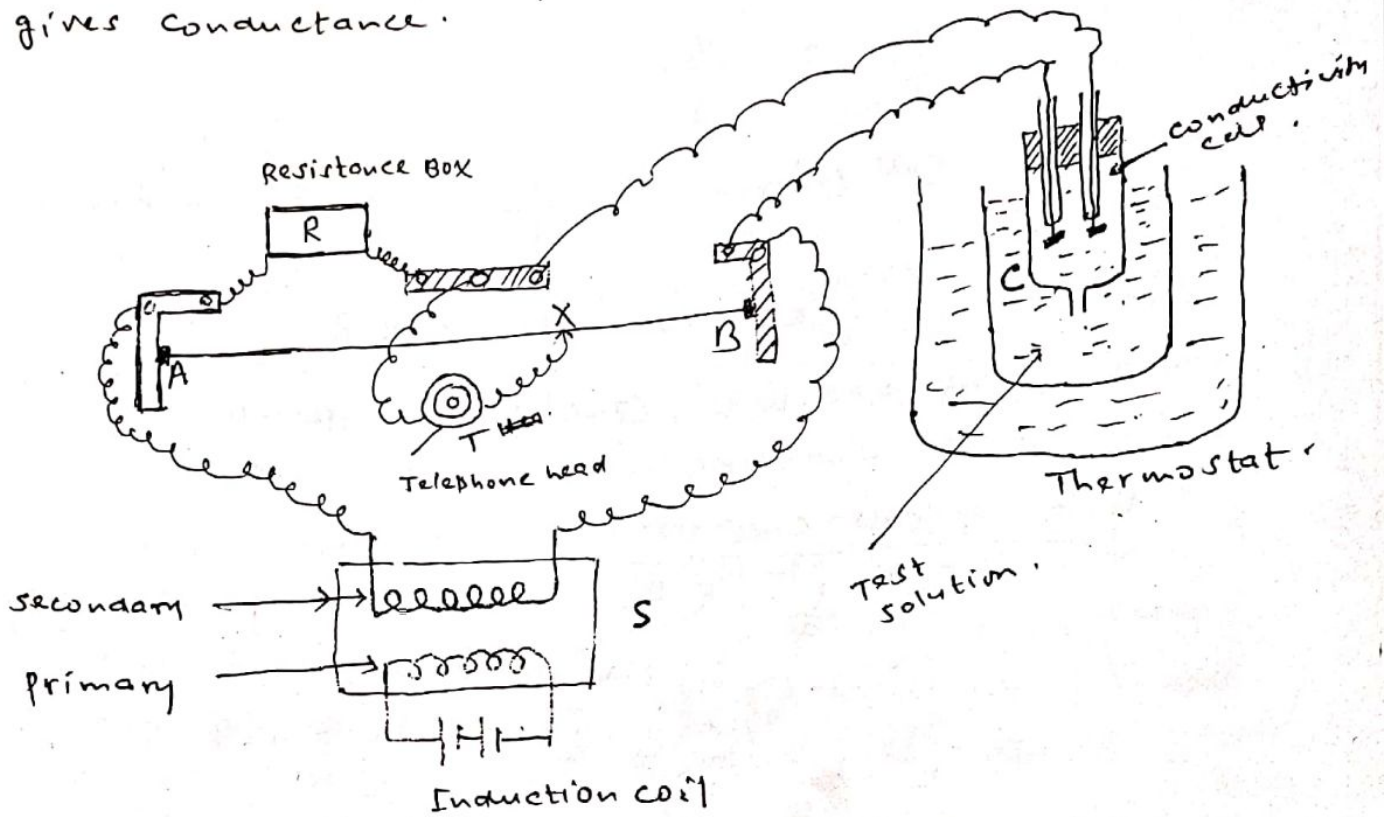 gives conductance.
Resistance Box
R
conductivity
cell.
X
A
B
C
T
Telephone head
Thermostat.
Test
solution.
secondary
S
primary
Induction coil